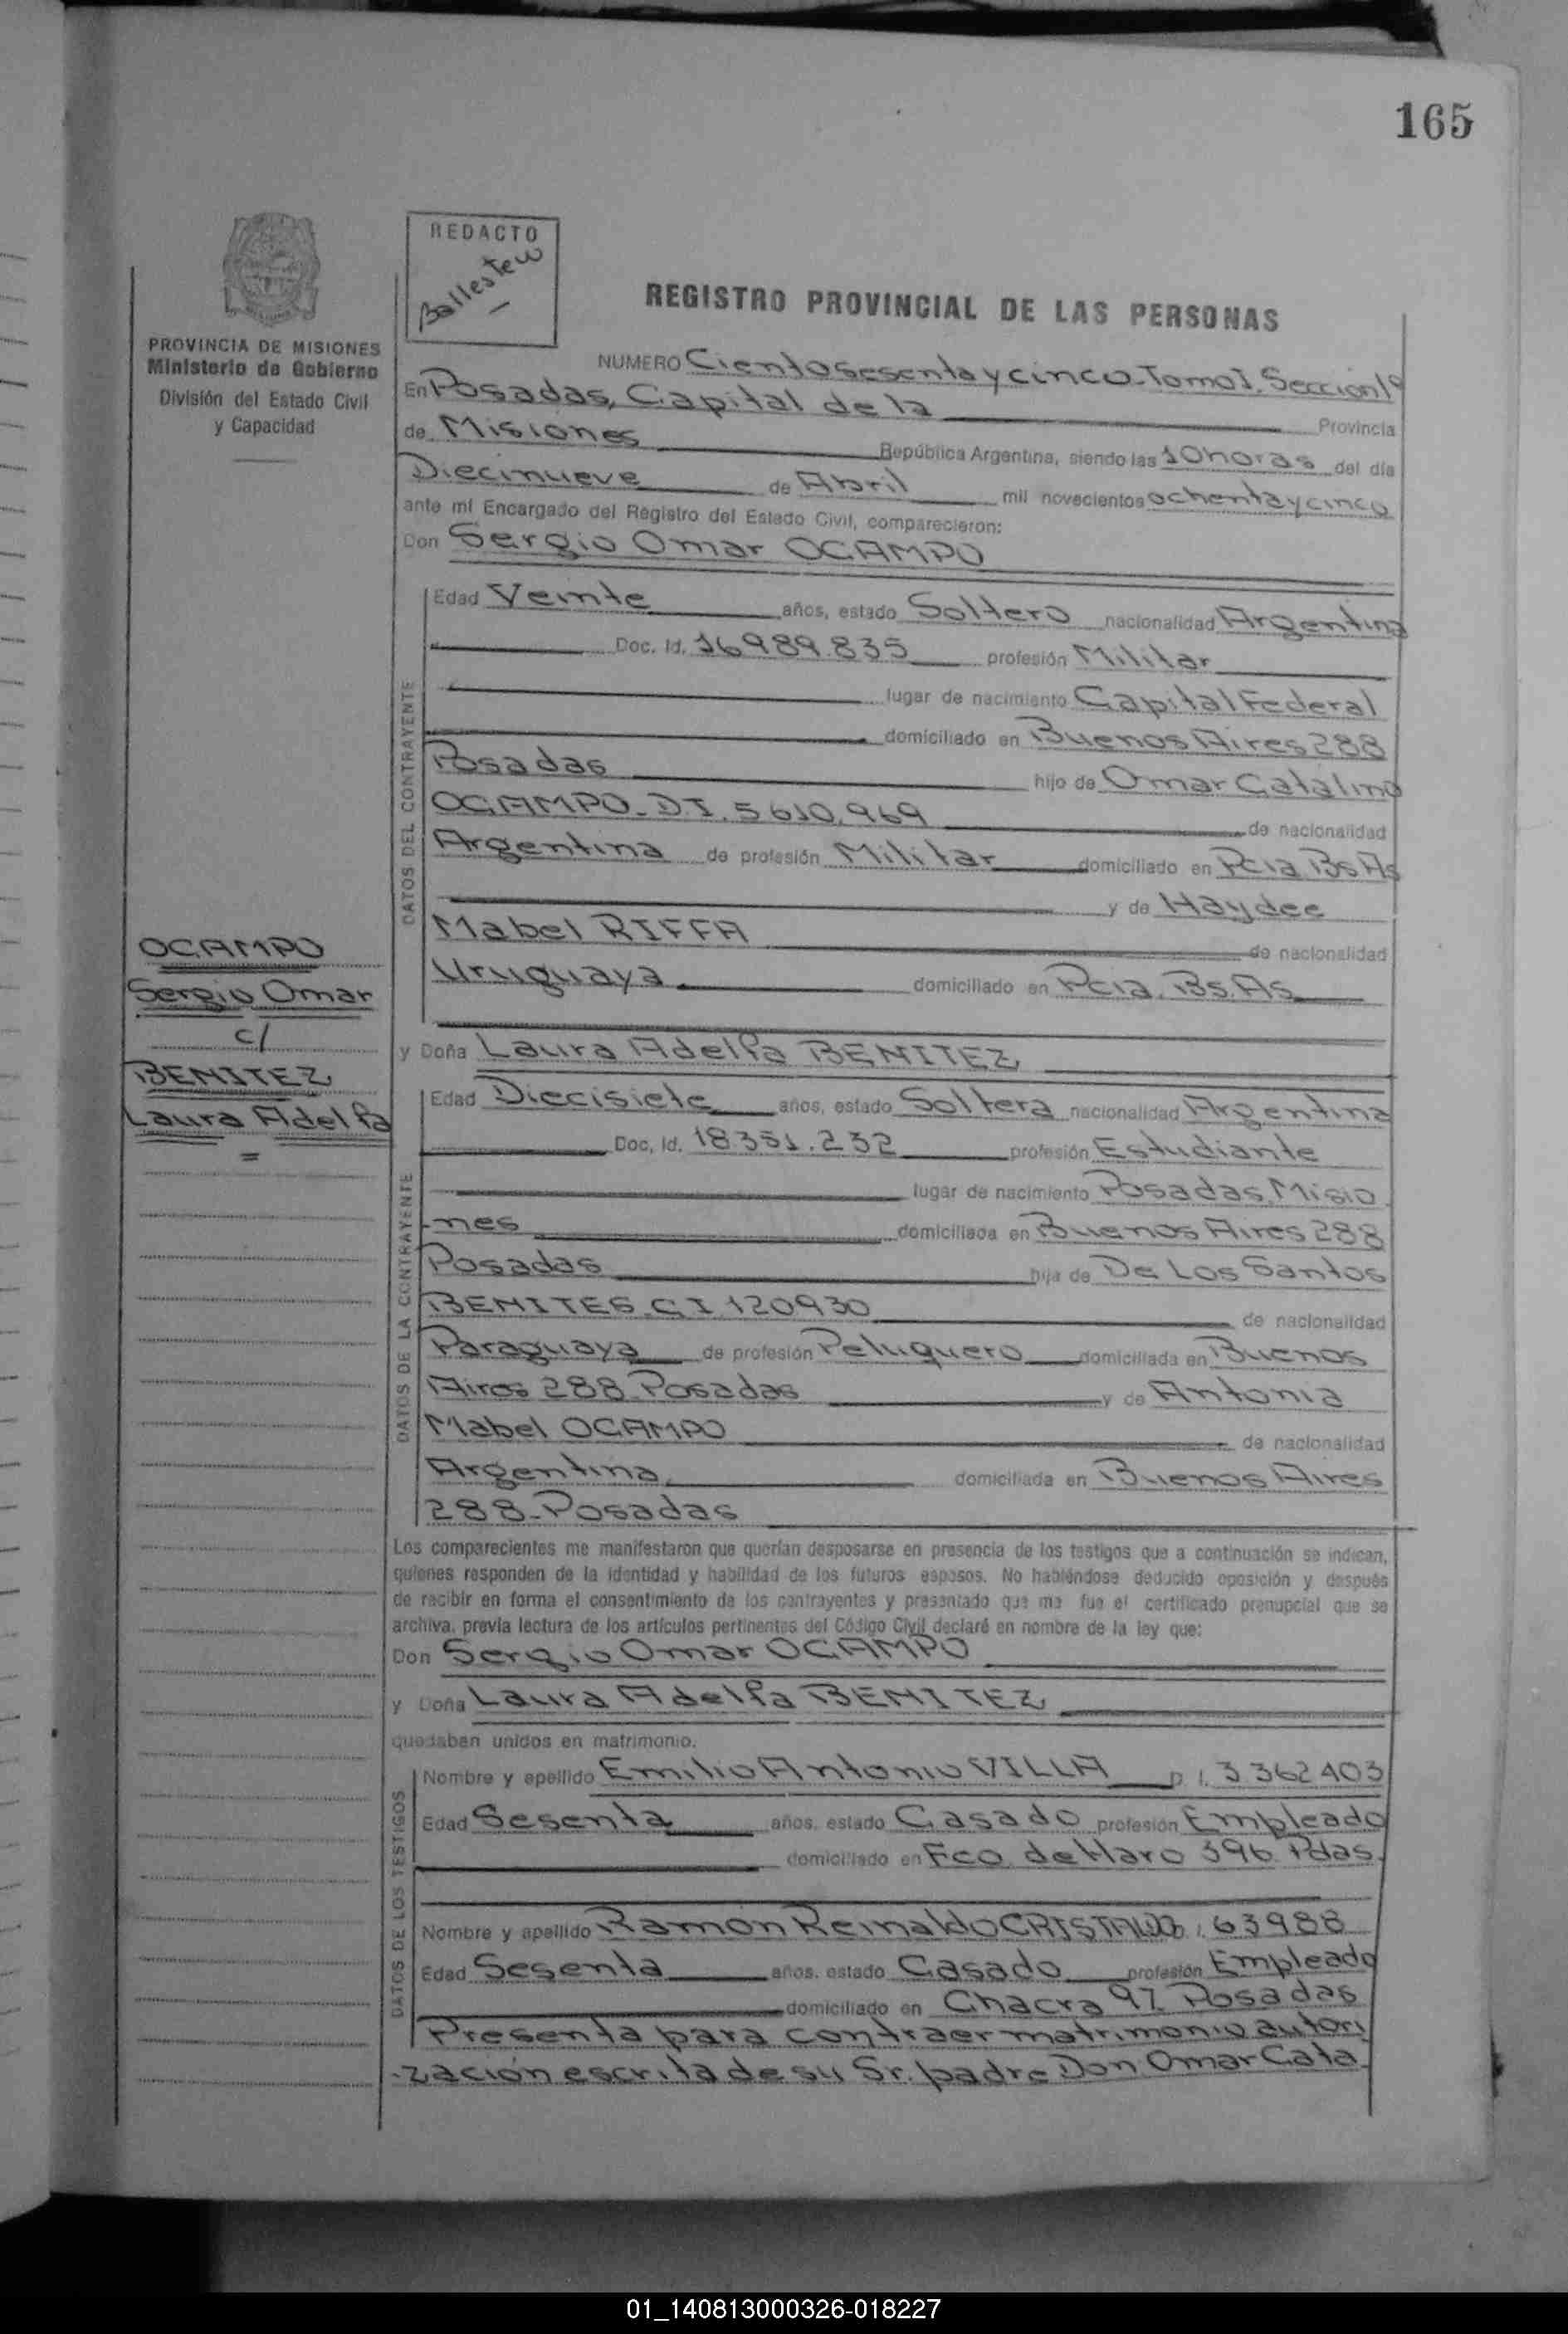 165
REDACTO
PROVINCIA DE MISIONES
Ministerio de Gobierno
División del Estado Civil
y Capacidad
REGISTRO PROVINCIAL DE LAS PERSONAS
NUMERO Ciento sesenta y cinco - Tomo I. Sección 1º
En Posadas, Capital de la Provincia
de Misiones República Argentina, siendo las 10 horas del día
Diecinueve de Abril mil novecientos ochenta y cinco
ante mí Encargado del Registro del Estado Civil, comparecieron:
Don Sergio Omar OCAMPO
DATOS DEL CONTRAYENTE
Edad Veinte años, estado Soltero nacionalidad Argentina
Doc. Id. 16989.835 profesión Militar
lugar de nacimiento Capital Federal
domiciliado en Buenos Aires 288
Posadas hijo de Omar Catalino
OCAMPO - D.I. 5610.969 de nacionalidad
Argentina de profesión Militar domiciliado en Pcia Bs As
y de Haydee
Mabel RIFFA de nacionalidad
Uruguaya domiciliado en Pcia. Bs. As
OCAMPO
Sergio Omar
c/
BENITEZ
Laura Adelfa
=
y Doña Laura Adelfa BENITEZ
DATOS DE LA CONTRAYENTE
Edad Diecisiete años, estado Soltera nacionalidad Argentina
Doc. Id. 18.351.232 profesión Estudiante
lugar de nacimiento Posadas, Misio
-nes domiciliada en Buenos Aires 288
Posadas hija de De Los Santos
BENITES C I 120930 de nacionalidad
Paraguaya de profesión Peluquero domiciliada en Buenos
Aires 288 Posadas y de Antonia
Mabel OCAMPO de nacionalidad
Argentina domiciliada en Buenos Aires
288 - Posadas
Los comparecientes me manifestaron que querían desposarse en presencia de los testigos que a continuación se indican,
quienes responden de la identidad y habilidad de los futuros esposos. No habiéndose deducido oposición y después
de recibir en forma el consentimiento de los contrayentes y presentado que me fue el certificado prenupcial que se
archiva, previa lectura de los artículos pertinentes del Código Civil declaré en nombre de la ley que:
Don Sergio Omar OCAMPO
y Doña Laura Adelfa BENITEZ
quedaban unidos en matrimonio.
DATOS DE LOS TESTIGOS
Nombre y apellido Emilio Antonio VILLA D. I. 3.362403
Edad Sesenta años, estado Casado profesión Empleado
domiciliado en Fco. de Haro 396 Pdas.
Nombre y apellido Ramón Reinaldo 63988
Edad Sesenta años, estado Casado profesión Empleado
domiciliado en Chacra 97 Posadas
Presenta para contraer matrimonio autori
-zación escrita de su Sr. padre Don Omar Cata
01_140813000326-018227